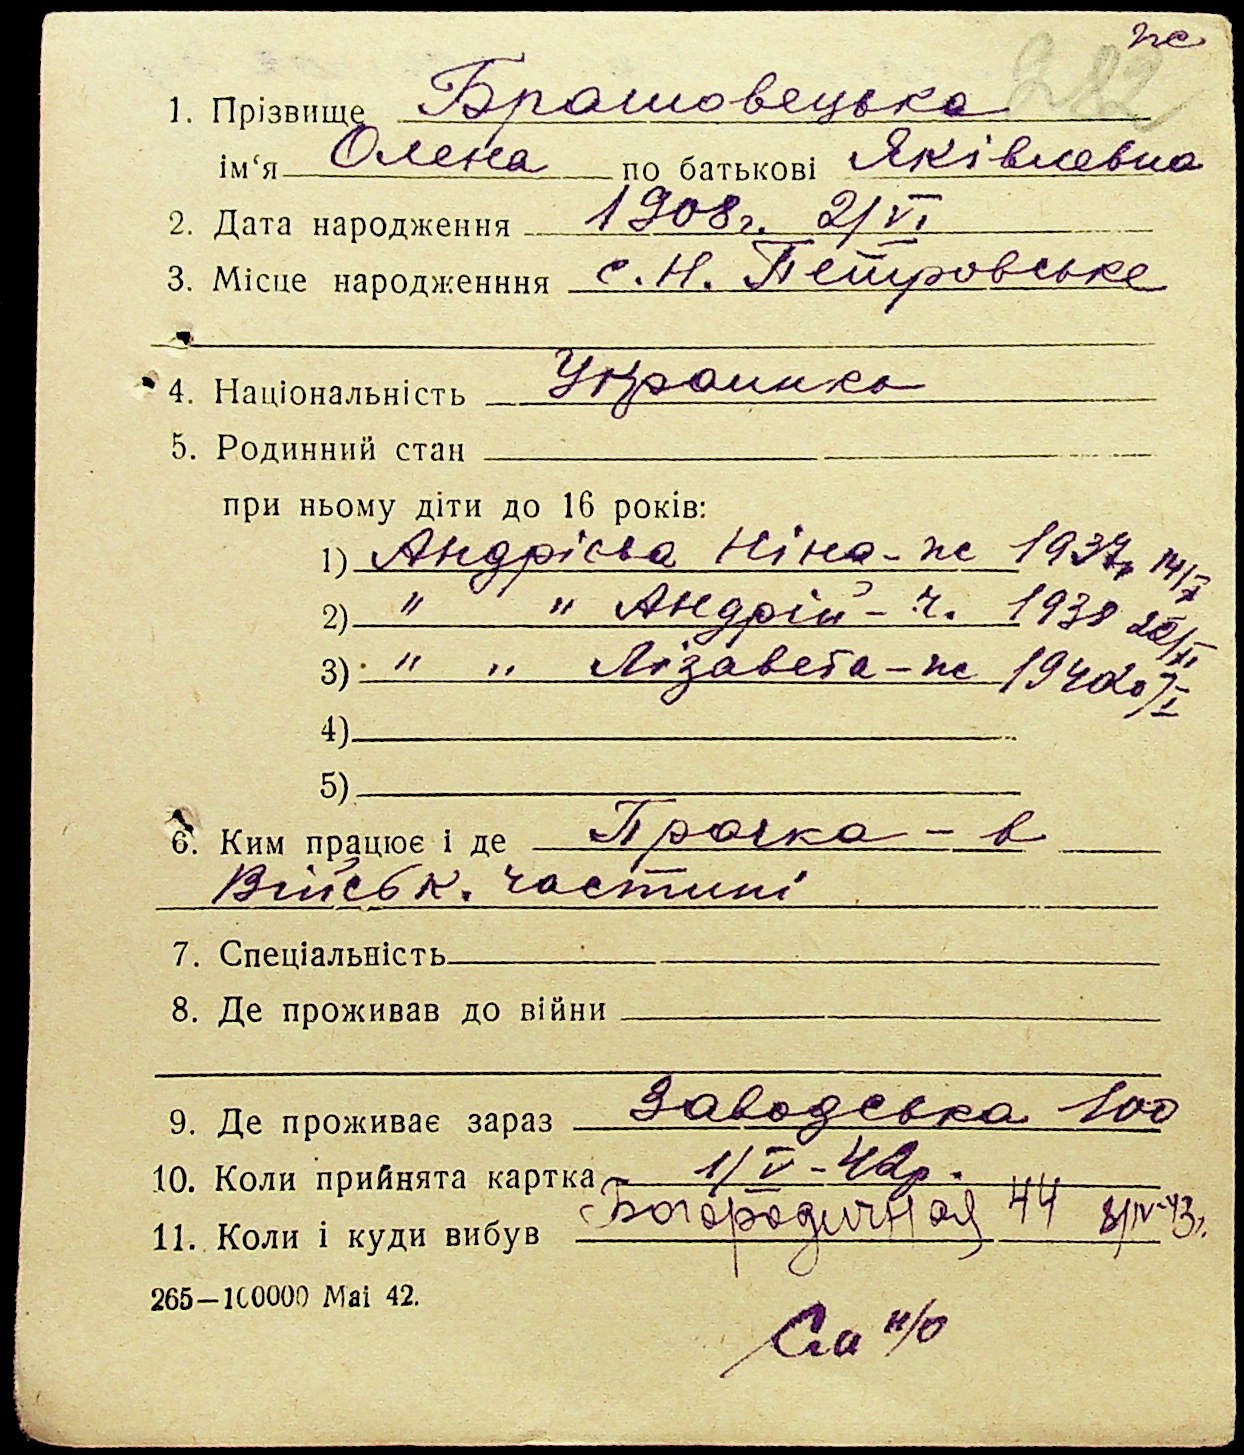 ж
282
1. Прізвище Брашовецька
ім‘я Олена по батькові Яківлевна
2. Дата народження 1908г. 2/VI
3. Місце народженння с. Н. Петровське
4. Національність Украинка
5. Родинний стан
при ньому діти до 16 років:
1) Андрієва Ніна - ж 1937г. 14/X
2) " " Андрій - ч. 1938 /XI
3) " " Лізавета - ж 1942 /I
4)
5)
6. Ким працює і де Прачка - в
Військ. частині
7. Спеціальність
8. Де проживав до війни
9. Де проживає зараз Заводська 100
10. Коли прийнята картка 1/V - 42р.
11. Коли і куди вибув Богородичная 44 8/IV-43г.
265—100000 Mai 42.
н/о